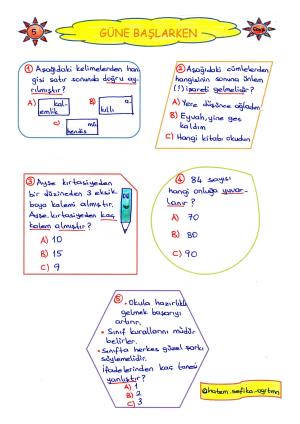 5
GÜNE BAŞLARKEN
1 Aşağıdaki kelimelerden han
gisi satır sonunda doğru ay
rılmıştır?
A) kal-
emlik
B) a.
kıllı
C) mü
hendis
2 Aşağıdaki cümlelerden
hangisinin sonuna ünlem
(!) işareti gelmelidir?
A) Yere düşünce ağladım
B) Eyvah, yine geç
kaldım
C) Hangi kitabı okudun
3 Ayşe kırtasiyeden
bir düzineden 3 eksik
boya kalemi almıştır.
Ayşe kırtasiyeden kaç
kalem almıştır?
A) 10
B) 15
C) 9
4 84 sayısı
hangi onluğa yuvar-
lanır?
A) 70
B) 80
C) 90
5
• Okula hazırlıklı
gelmek başarıyı
artırır.
• Sınıf kurallarını müdür
belirler.
• Sınıfta herkes güzel şarkı
söylemelidir.
İfadelerinden kaç tanesi
yanlıştır?
A) 1
B) 2
C) 3